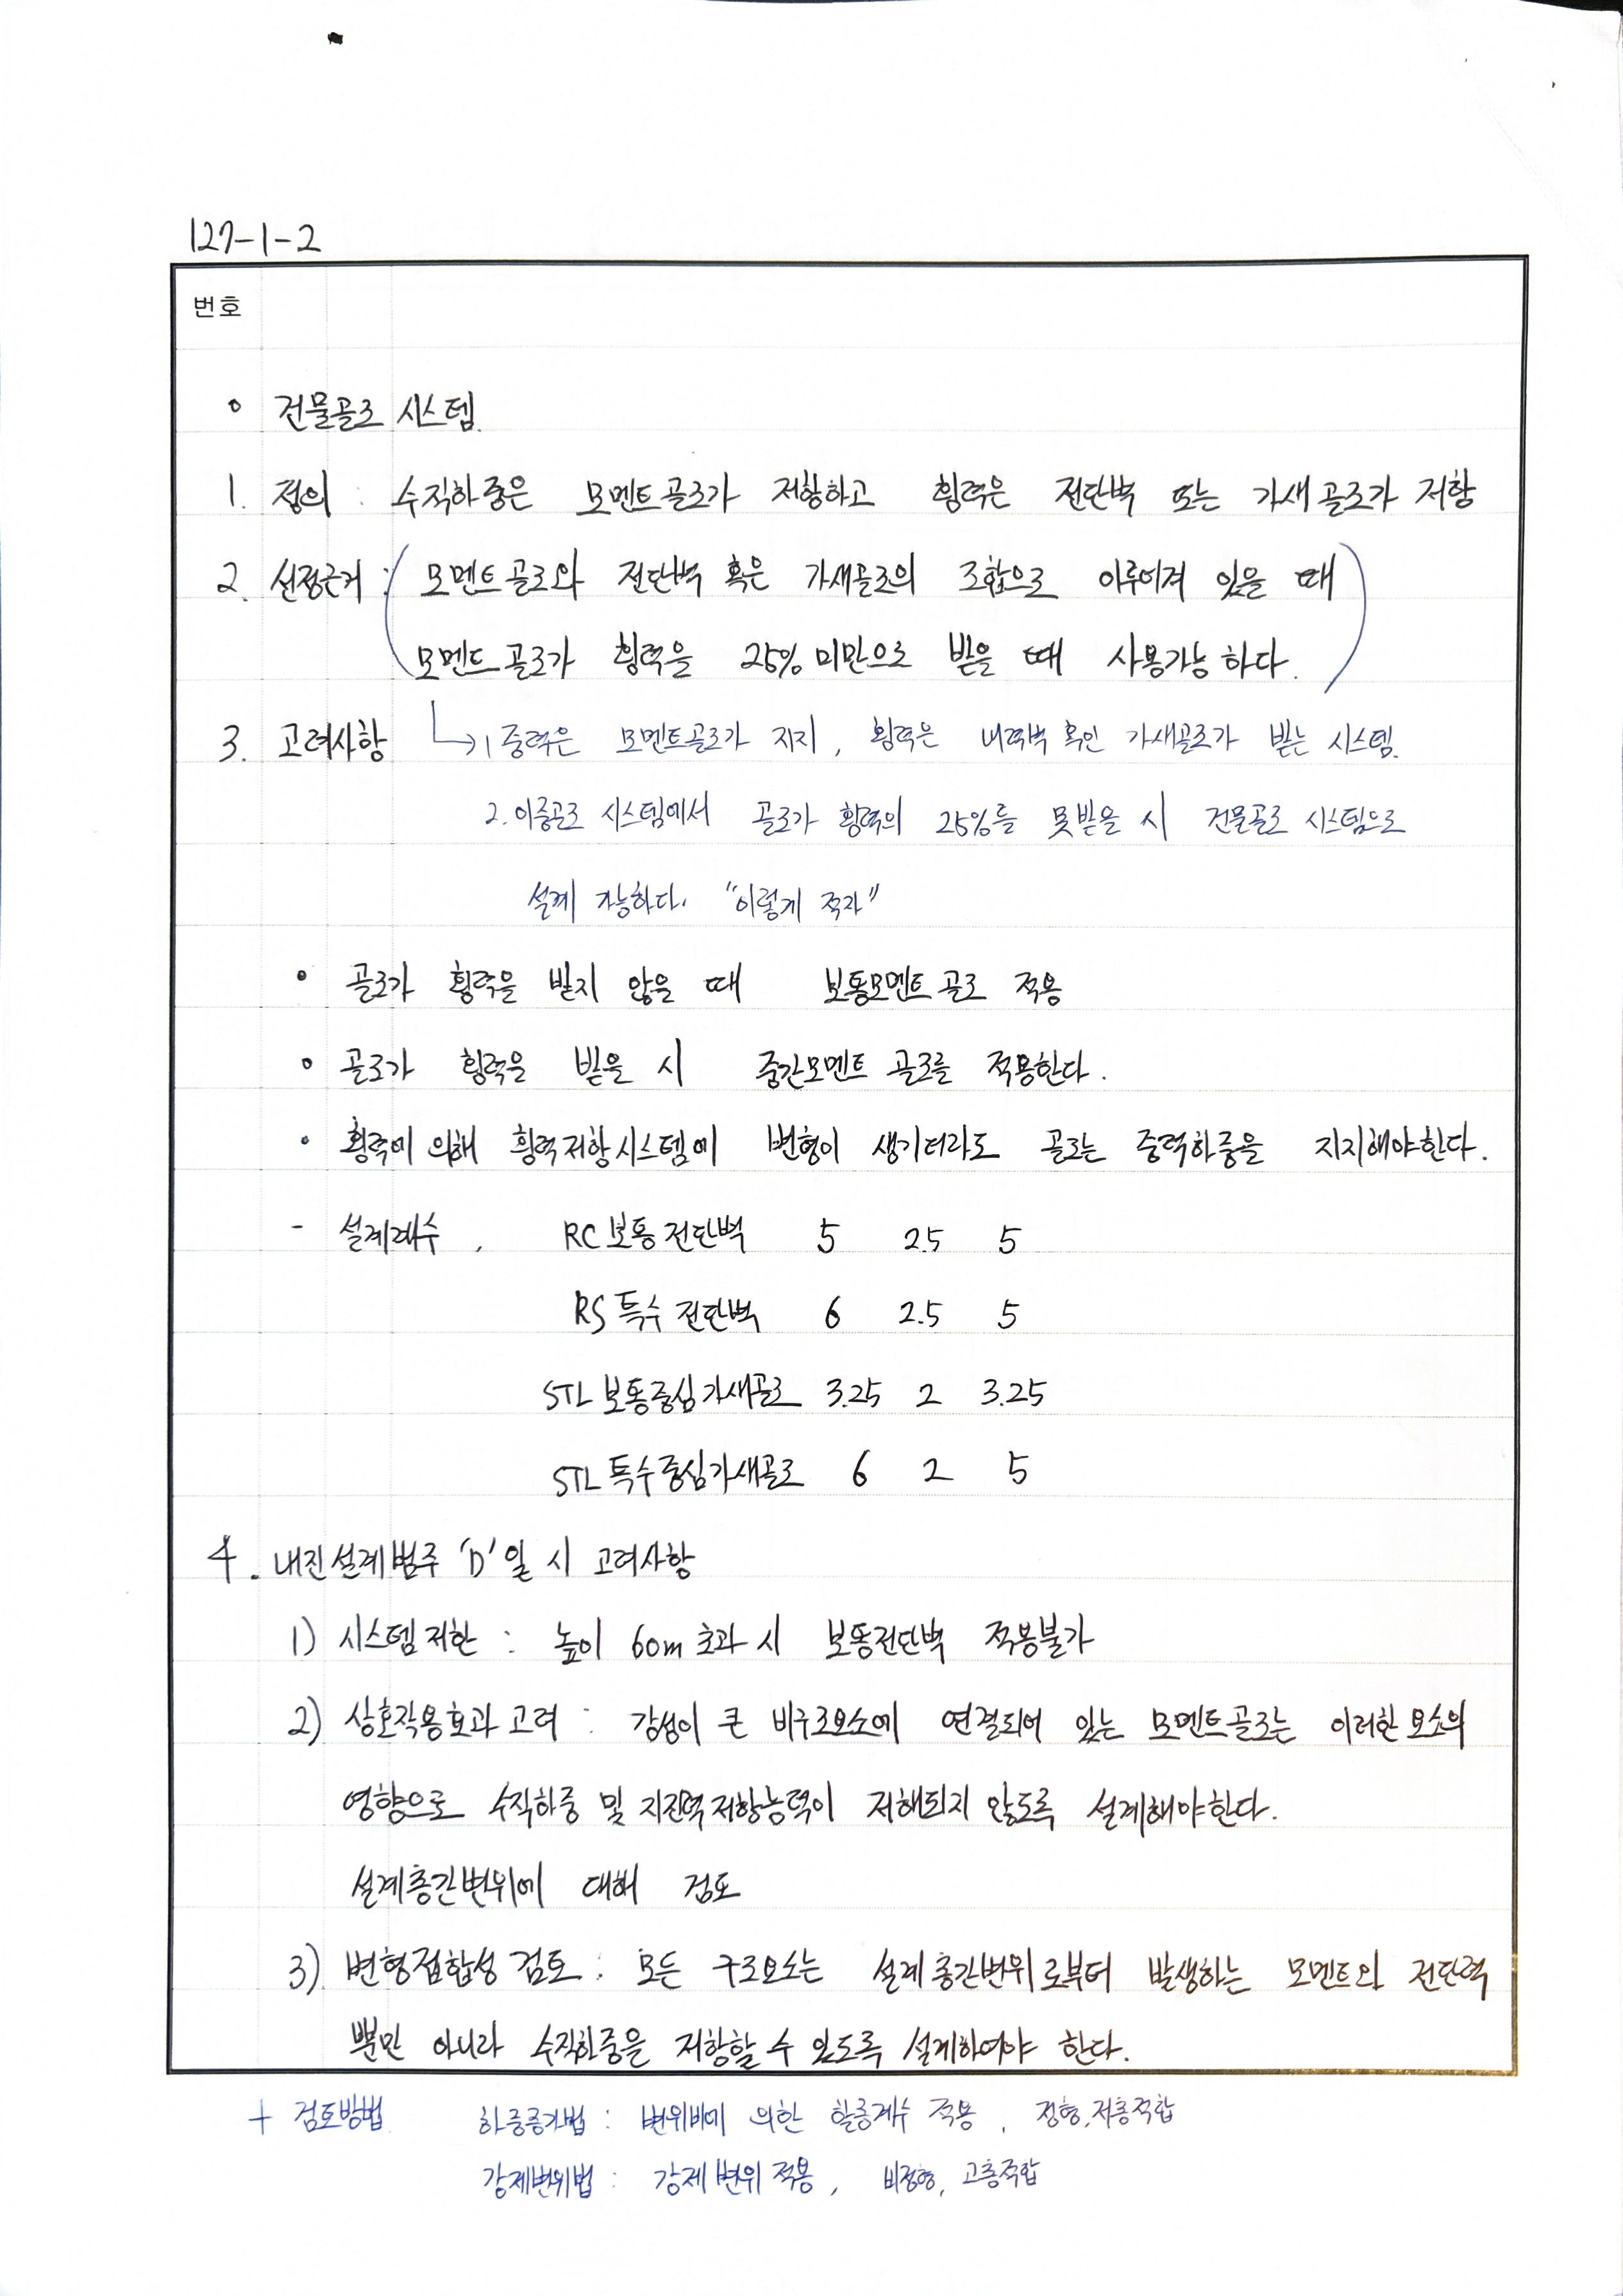 127-1-2
번호
• 건물골조 시스템.
1. 정의 : 수직하중은 모멘트골조가 저항하고 횡력은 전단벽 또는 가새골조가 저항
2. 선정근거 : 모멘트골조와 전단벽 혹은 가새골조의 조합으로 이루어져 있을 때
모멘트골조가 횡력을 25% 미만으로 받을 때 사용가능하다.
3. 고려사항 ↳ 1. 중력은 모멘트골조가 지지, 횡력은 내력벽 혹인 가새골조가 받는 시스템.
2. 이중골조 시스템에서 골조가 횡력의 25%를 못받을 시 건물골조 시스템으로
설계 가능하다. "이렇게 적자"
• 골조가 횡력을 받지 않을 때 보통모멘트골조 적용
• 골조가 횡력을 받을 시 중간모멘트 골조를 적용한다.
• 횡력에 의해 횡력저항시스템에 변형이 생기더라도 골조는 중력하중을 지지해야한다.
- 설계계수, RC 보통전단벽 5 2.5 5
RS 특수 전단벽 6 2.5 5
STL 보통중심가새골조 3.25 2 3.25
STL 특수중심가새골조 6 2 5
4. 내진설계범주 'D' 일 시 고려사항
1) 시스템제한 : 높이 60m 초과 시 보통전단벽 적용불가
2) 상호작용효과 고려 : 강성이 큰 비구조요소에 연결되어 있는 모멘트골조는 이러한 요소의
영향으로 수직하중 및 지진력저항능력이 저해되지 않도록 설계해야한다.
설계층간변위에 대해 검토
3) 변형접합성 검토 : 모든 구조요소는 설계층간변위로부터 발생하는 모멘트와 전단력
뿐만 아니라 수직하중을 저항할 수 있도록 설계하여야 한다.
+ 검토방법 하중증가법 : 변위비에 의한 할증계수 적용, 정형, 저층적합
강제변위법 : 강제변위 적용, 비정형, 고층적합